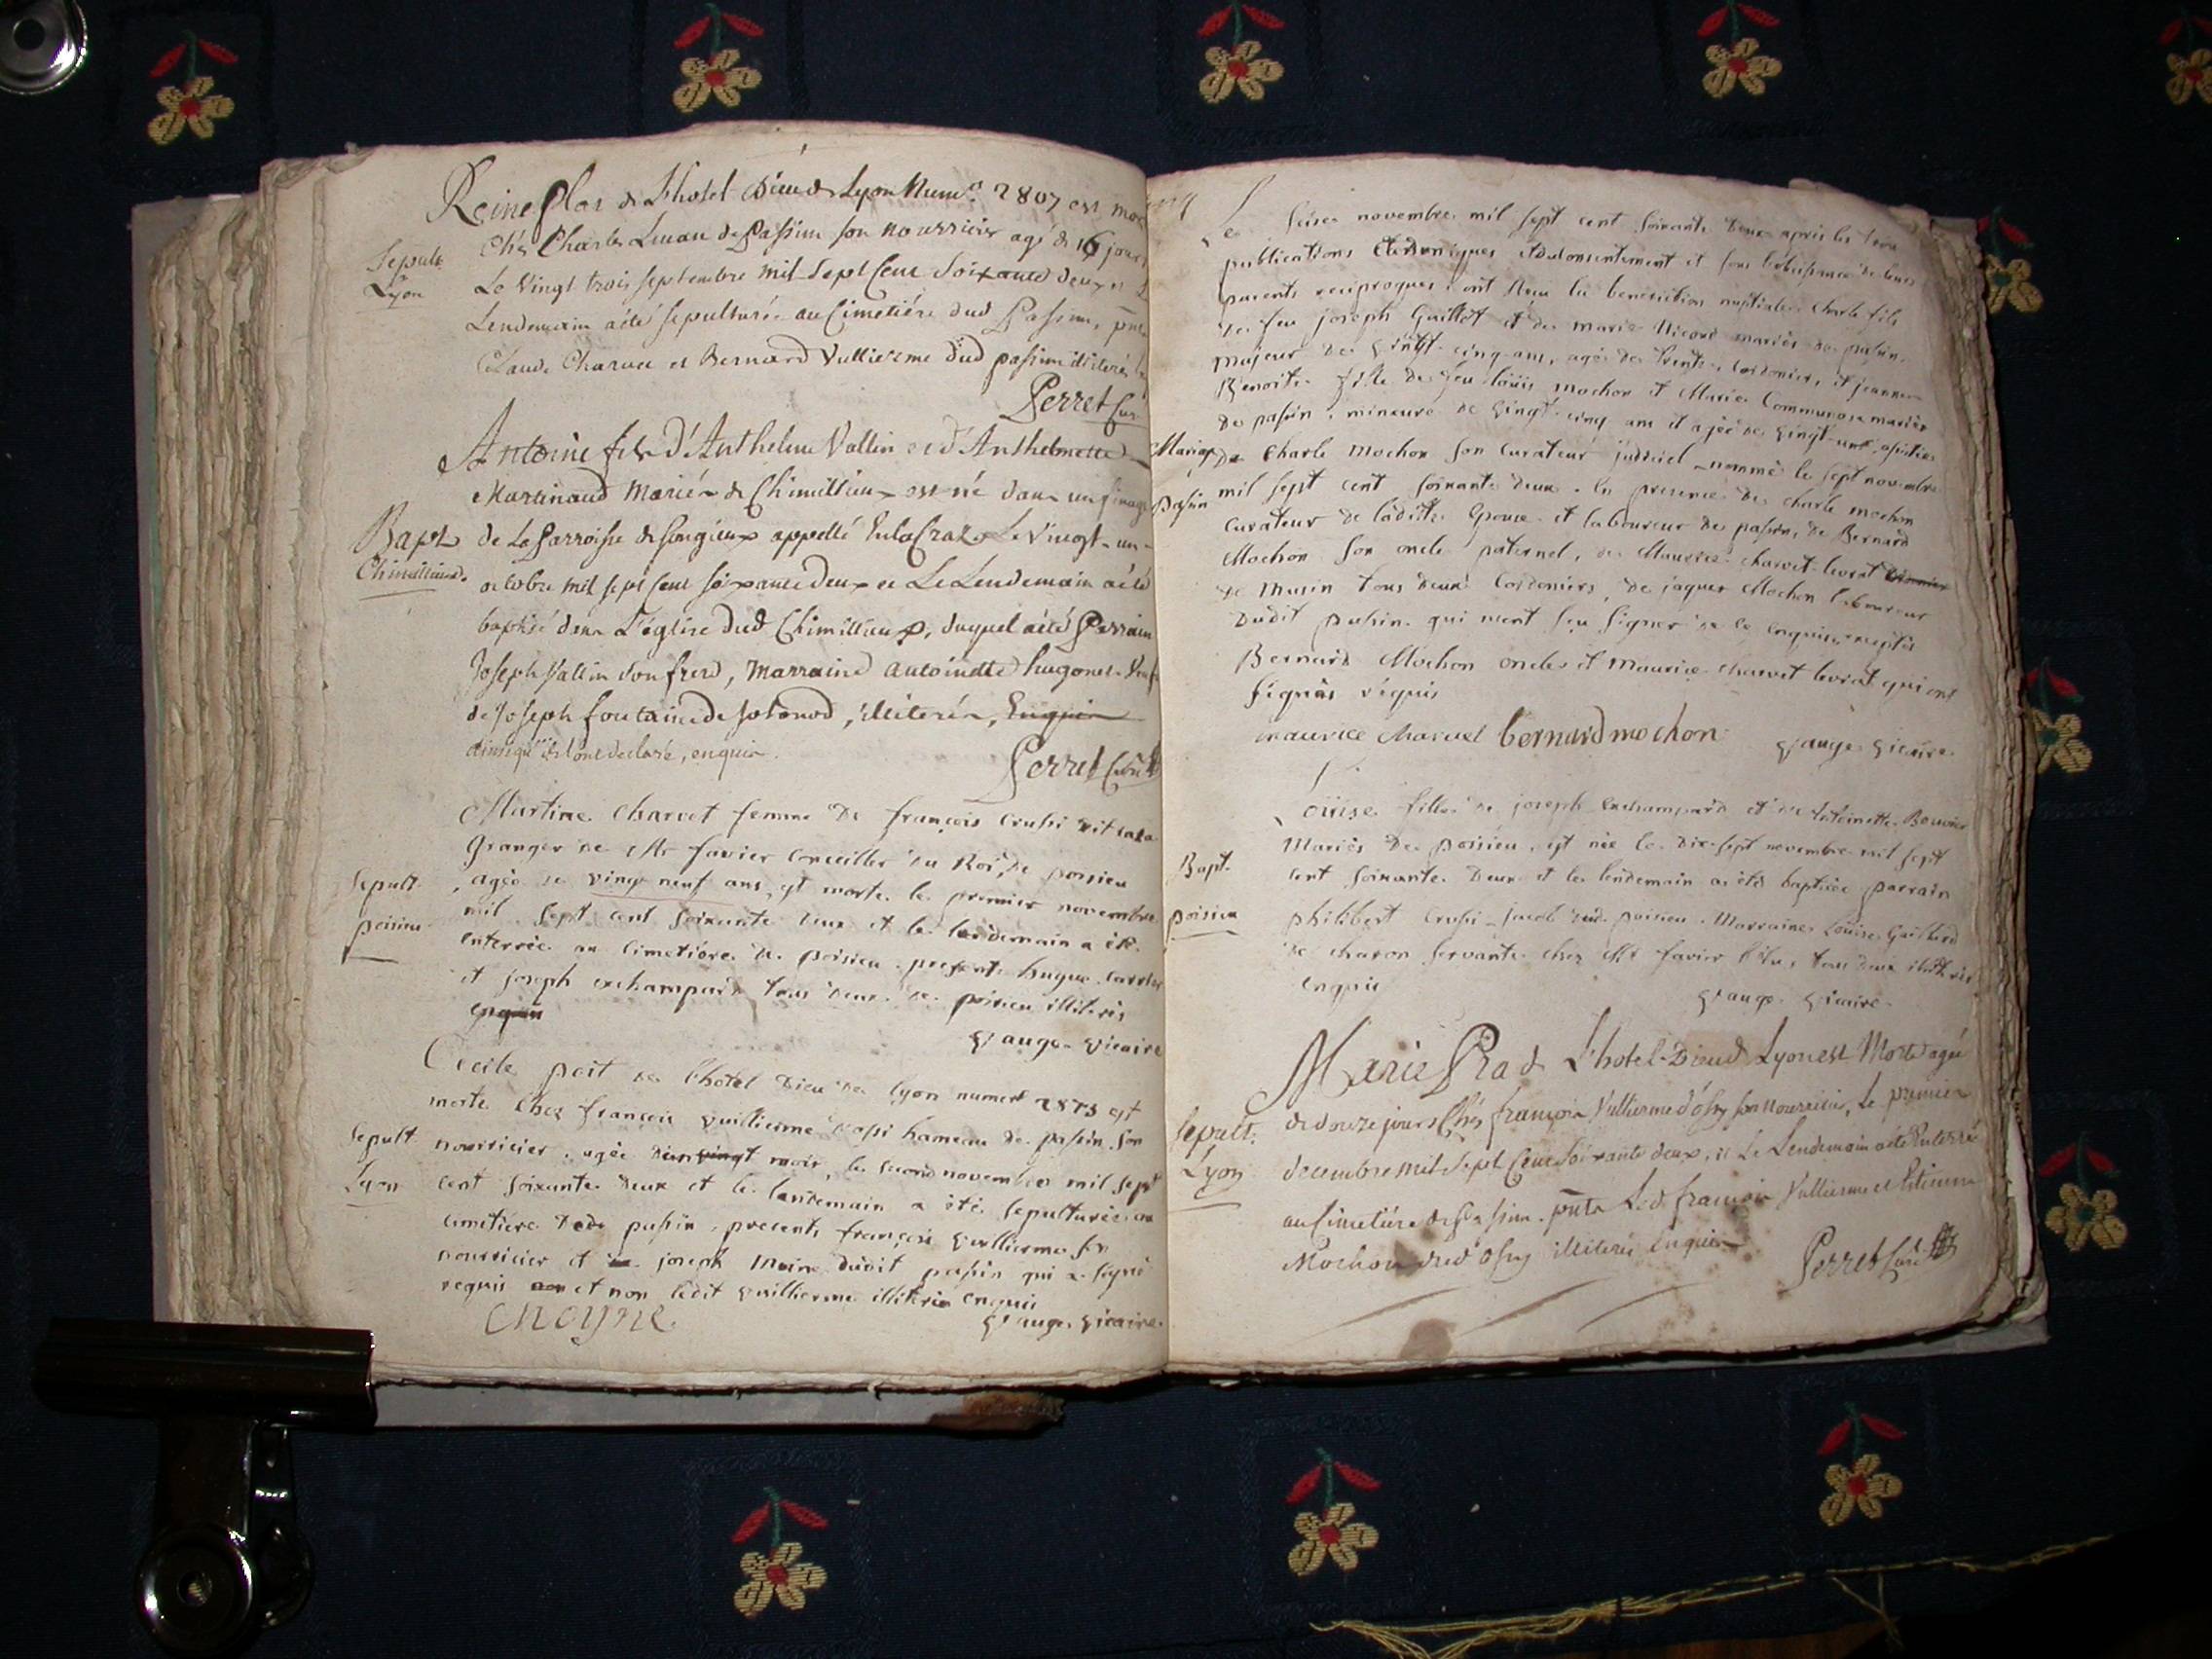 Reine Plas de Lhotel Dieu de Lyon Num.º 2807 est mor
Sepult. Lyon
Chés Charles Luvan de Passin son nourricier agé de 16 jours
Le Vingt trois septembre mil Sept Cent Soixante deux et L
Lendemain a été sepulturée au Cimetiére dud Passin, pnts
Claude Charvet et Bernard Vullierme dud passin illiterés
Perret Cur
Antoine fils d'Anthelme Vallin et d'Anthelmette
Martinand Mariés de Chimillieu est né dans un
Bapt. Chimillieu.
de La Parroisse de Songieux appellé En la Craz Le Vingt-un
octobre mil sept cent soixante deux et Le Lendemain a été
baptisé dans L'église dud Chimillieux, duquel a été Parrain
Joseph Vallin son frere, marraine antoinette hugonet
de Joseph fontaine de Sothonod, illiterés, Enquis
ainsi qu'ils l'ont declaré, enquis.
Perret Curé
Martine Charvet femme de françois Crussi dit
Granger de Mr favier Conseiller du Roi, de poisieu
Sepult. poisieu
, agée de vingt neuf ans, est morte le premier novembre
mil sept cent soixante deux et le lendemain a été
enterrée au Cimetiére de poisieu. presents hugue
et joseph exchampard tous deux de poisieu illiterés
enquis
vicaire
Cecile poit de l'hotel Dieu de lyon numero 2873 est
morte chez françois Vuillierme d'ossi hameau de passin son
Sepult Lyon
nourricier, agée vingt mois, le second novembre mil sept
cent soixante deux et le lendemain a été sepulturée au
cimetiére dud passin, presents françois vuillierme son
nourricier et joseph Moine dudit passin qui a signé
requis et non ledit vuillierme illiteré enquis
Moyne
vicaire
Le seize novembre mil sept cent soixante deux après les trois
publications Canoniques et du consentement et sous l'obeissance de leurs
parents reciproques ont reçu la benediction nuptiale Charle fils
de feu joseph Guillot et de marie Nicord mariés de passin
majeur de vingt-cinq ans, agé de trente, Cordonier, et jeanne
Benoite fille de feu loüis Mochon et Marie Communose mariés
de passin, mineure de vingt-cinq ans et agée de vingt-un assistée
Mariage passin
de Charle Mochon son curateur judiciel nommé le sept novembre
mil sept cent soixante deux. En presence de charle mochon
curateur de ladite Epouse et laboureur de passin, de Bernard
Mochon son oncle paternel, de Maurice charvet levrat
de Musin tous deux Cordoniers, de jaque Mochon laboureur
dudit passin qui n'ont sçu signer de ce enquis, exceptés
Bernard Mochon oncle et Maurice charvet levrat qui ont
signés requis
maurice charvet bernard mochon
vicaire
Loüise fille de joseph Exchampard et de Antoinette Bouvier
Mariés de poisieu, est née le dix-sept novembre mil sept
Bapt. poisieu
cent soixante Deux et le lendemain a été baptisée parrain
philibert Crussi-jacob dud. poisieu. Marraine Loüise Guillard
de charon servante chez Mr favier l'Elu, tous deux illiterés
enquis
vicaire
Marie Pra de L'hotel-Dieu de Lyon est Morte agée
Sepult. Lyon
de douze jours Chés françois Vullierme d'ossy son nourricier, Le premier
decembre mil Sept Cent Soixante deux, et Le Lendemain a été Enterrée
au Cimetiére de Passin. pnts Led. françois Vullierme et Etienne
Mochon dud ossy illiterés Enquis
Perret Curé